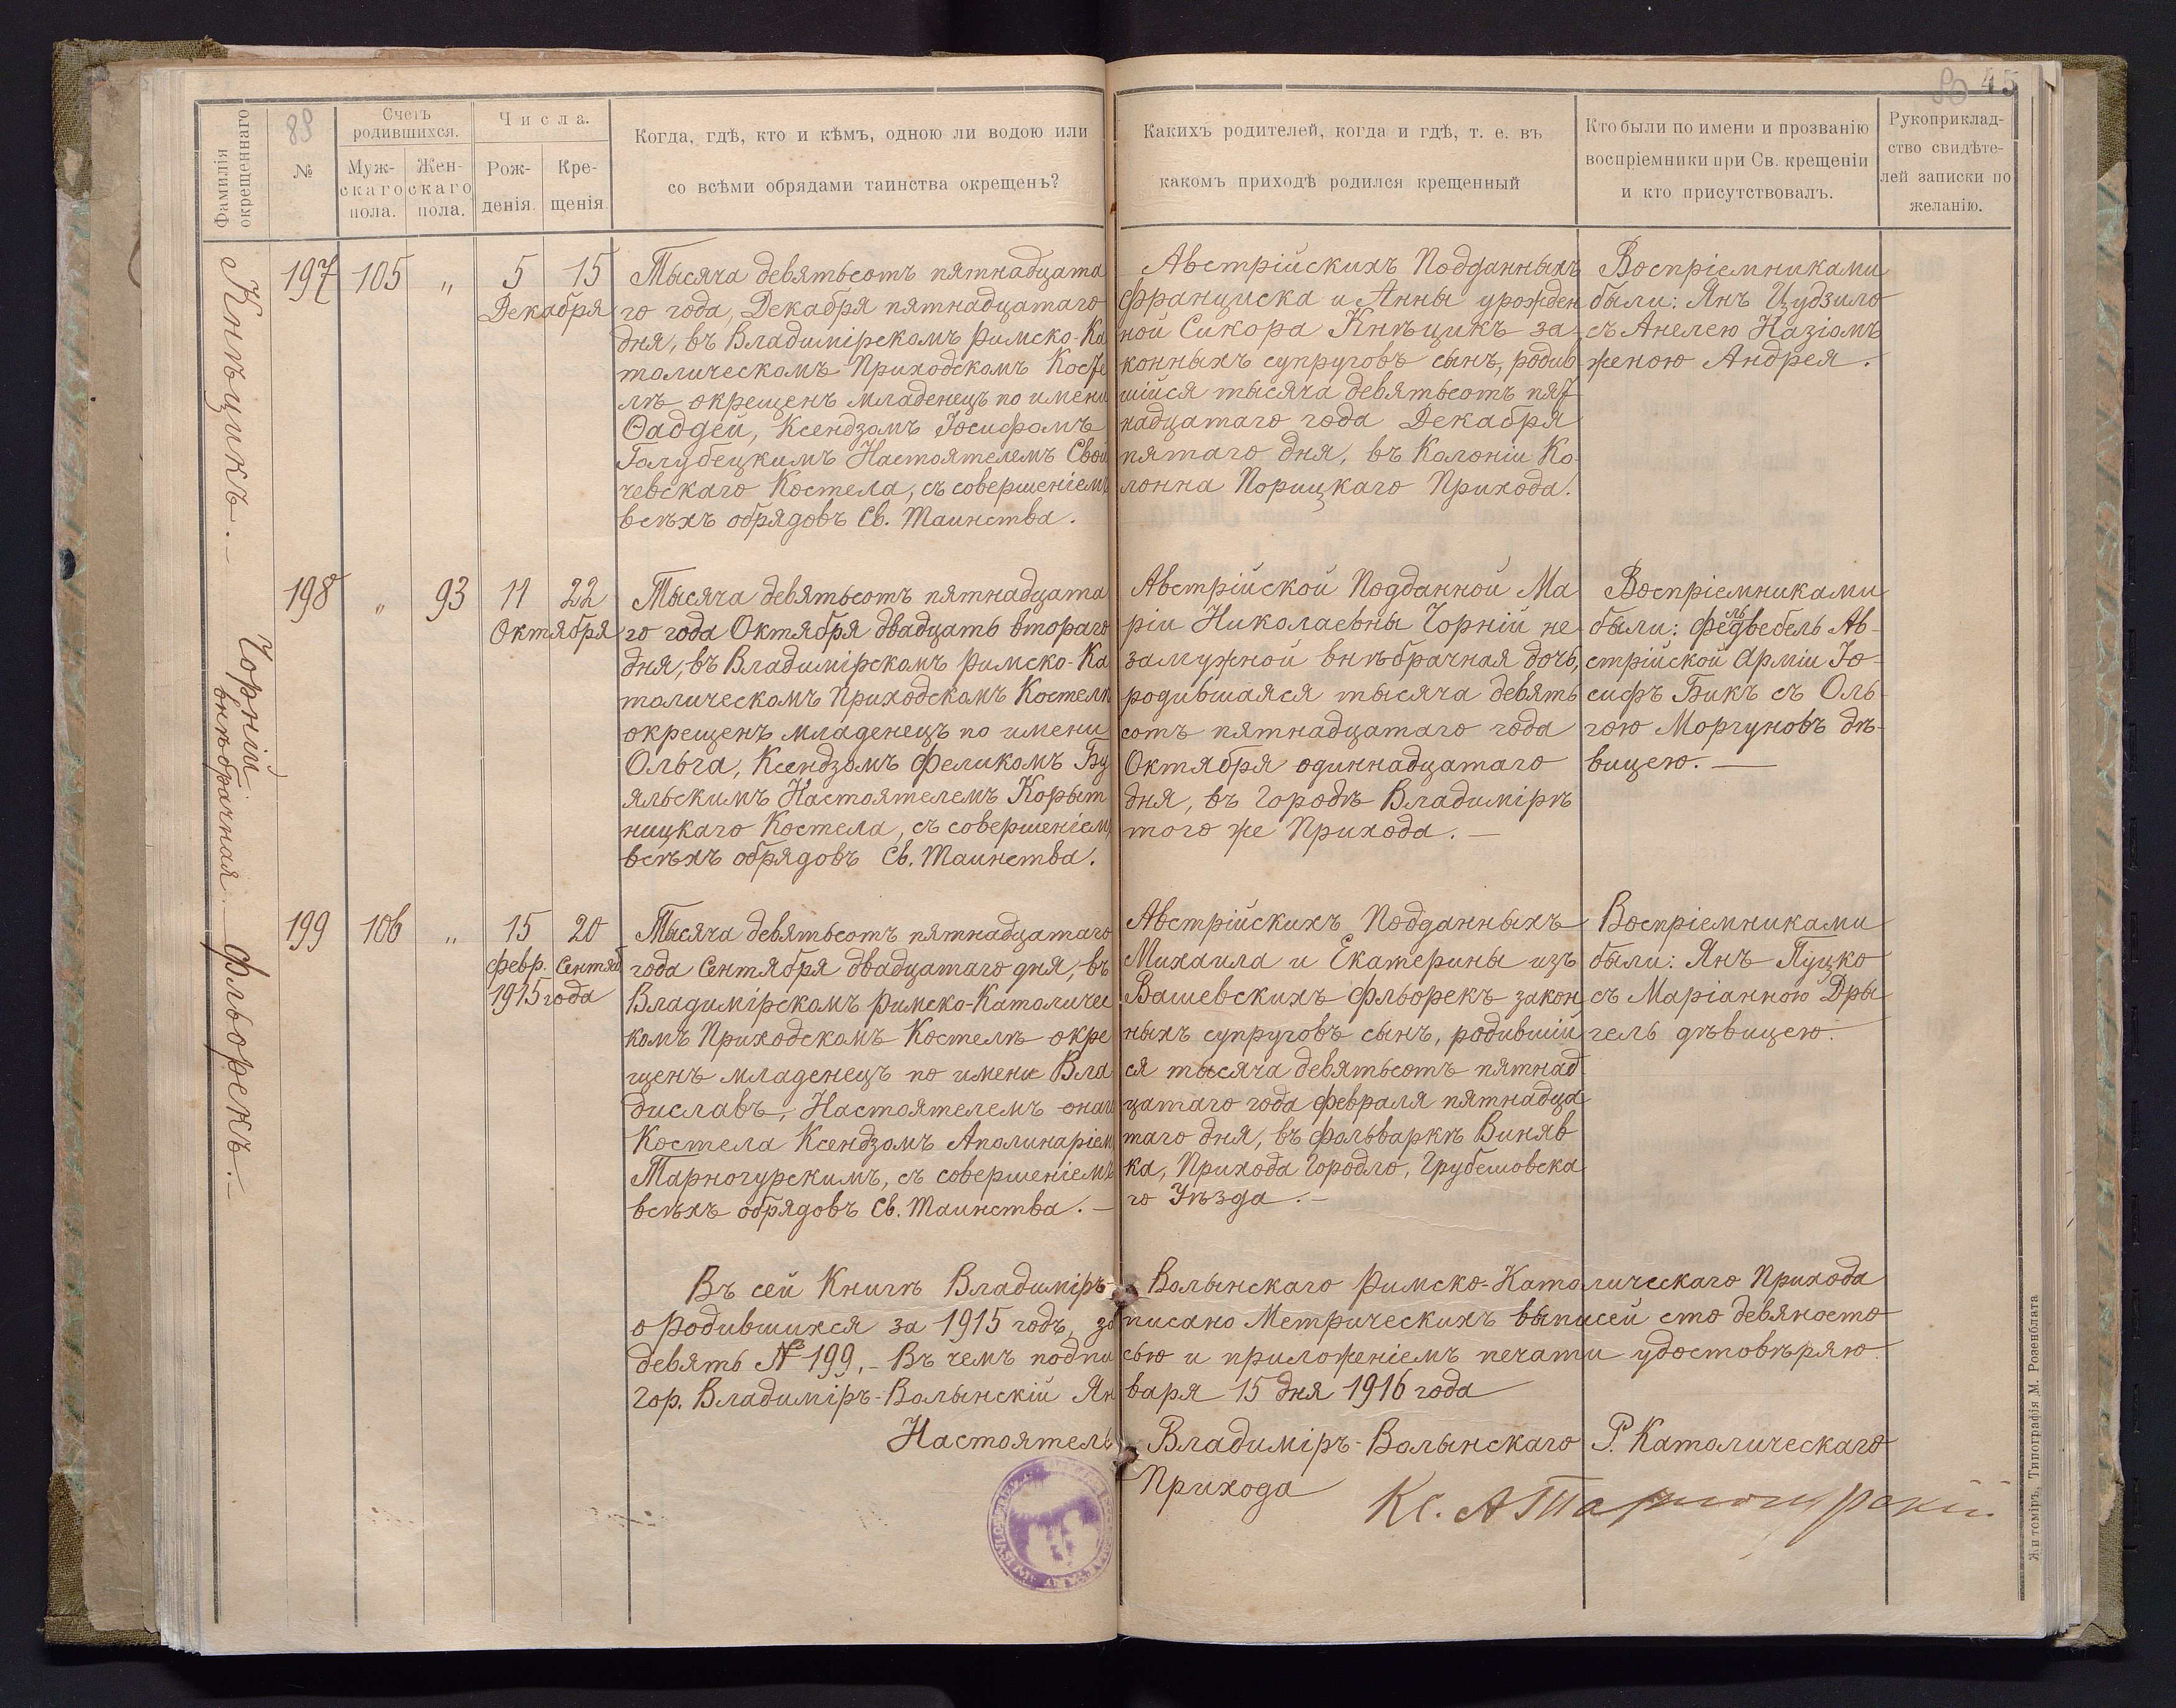 89
80 45
Фамилія окрещеннаго
№
Счетъ родившихся.
Муж-скаго пола.
Жен-скаго пола.
Числа.
Рож-денія.
Кре-щенія.
Когда, гдѣ, кто и кѣмъ, одною ли водою или
со всѣми обрядами таинства окрещенъ?
Какихъ родителей, когда и гдѣ, т. е. въ
какомъ приходѣ родился крещенный
Кто были по имени и прозванію
воспріемники при Св. крещеніи
и кто присутствовалъ.
Рукоприклад-
ство свидѣте-
лей записки по
желанію.
Кнѣцикъ.-
197 105 „ 5 15
Декабря
Тысяча девятьсотъ пятнадцата
го года, Декабря пятнадцатаго
дня, въ Владимірскомъ Римско-Ка
толическомъ Приходскомъ Косте
лѣ окрещенъ младенецъ по имени
Ѳаддей, Ксендзомъ Іосифомъ
Голубецкимъ Настоятелемъ Свой
чевскаго Костела, съ совершеніемъ
всѣхъ обрядовъ Св. Таинства.
Австрійскихъ Подданныхъ
Франциска и Анны урожден
ной Сикора Кнѣцикъ за-
конныхъ супруговъ сынъ, родив
шійся тысяча девятьсотъ пят
надцатаго года Декабря
пятаго дня, въ Колоніи Ко-
лонна Порицкаго Прихода.
Воспріемниками
были: Янъ Цудзило
съ Анелею Назіомъ
женою Андрея.
Чорній
внѣбрачная.-
198 „ 93 11 22
Октября
Тысяча девятьсотъ пятнадцата
го года Октября двадцать втораго
дня, въ Владимірскомъ Римско-Ка
толическомъ Приходскомъ Костелѣ
окрещенъ младенецъ по имени
Ольга, Ксендзомъ Феликомъ Бу
яльскимъ Настоятелемъ Корыт
ницкаго Костела, съ совершеніемъ
всѣхъ обрядовъ Св. Таинства.
Австрійской Подданной Ма
ріи Николаевны Чорній не-
замужной внѣбрачная дочь,
родившаяся тысяча девять
сотъ пятнадцатаго года
Октября одиннадцатаго
дня, въ Городѣ Владимірѣ
того же Прихода.-
Воспріемниками
были: фельдвебель Ав-
стрійской Арміи Іо-
сифъ Бикъ съ Оль-
гою Моргуновъ дѣ-
вицею.-
Фльорекъ.-
199 106 „ 15 20
Февр. Сентяб
1915 года
Тысяча девятьсотъ пятнадцатаго
года Сентября двадцатаго дня, въ
Владимірскомъ Римско-Католичес
комъ Приходскомъ Костелѣ окре
щенъ младенецъ по имени Вла
диславъ, Настоятелемъ онаго
Костела Ксендзомъ Аполинаріемъ
Тарногурскимъ, съ совершеніемъ
всѣхъ обрядовъ Св. Таинства.-
Австрійскихъ Подданныхъ
Михаила и Екатерины изъ
Вашевскихъ Фльорекъ закон
ныхъ супруговъ сынъ, родившій
ся тысяча девятьсотъ пятнад
цатаго года Февраля пятнадца
таго дня, въ фольваркѣ Виняв
ка, Прихода Городло, Грубешовска
го Уѣзда.-
Воспріемниками
были: Янъ Пуцко
съ Маріанною Дры
гель дѣвицею.
Въ сей Книгѣ Владиміръ-Волынскаго Римско-Католическаго Прихода
о родившихся за 1915 годъ, записано Метрическихъ выписей сто девяносто
девять № 199.- Въ чемъ подписью и приложеніемъ печати удостовѣряю
Гор. Владиміръ-Волынскій Января 15 дня 1916 года
Настоятель Владиміръ-Волынскаго Р. Католическаго
Прихода Кс. А Тарногурскій
Житоміръ, Типографія М. Розенблата